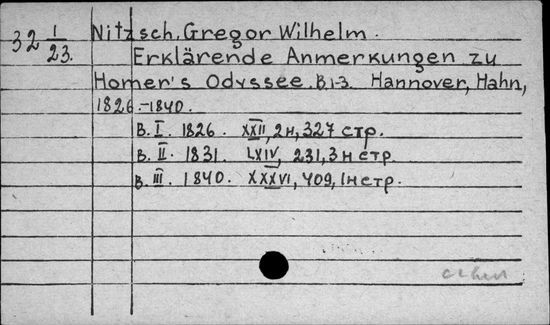 32 1/23. Nitzsch, Gregor Wilhelm.
Erklärende Anmerkungen zu
Homer's Odyssee. B. 1-3. Hannover, Hahn,
1826.-1840.
B. I. 1826. XXII, 2н, 327 стр.
B. II. 1831. LXIV, 231, 3н стр.
B. III. 1840. XXXVI, 409, 1н стр.